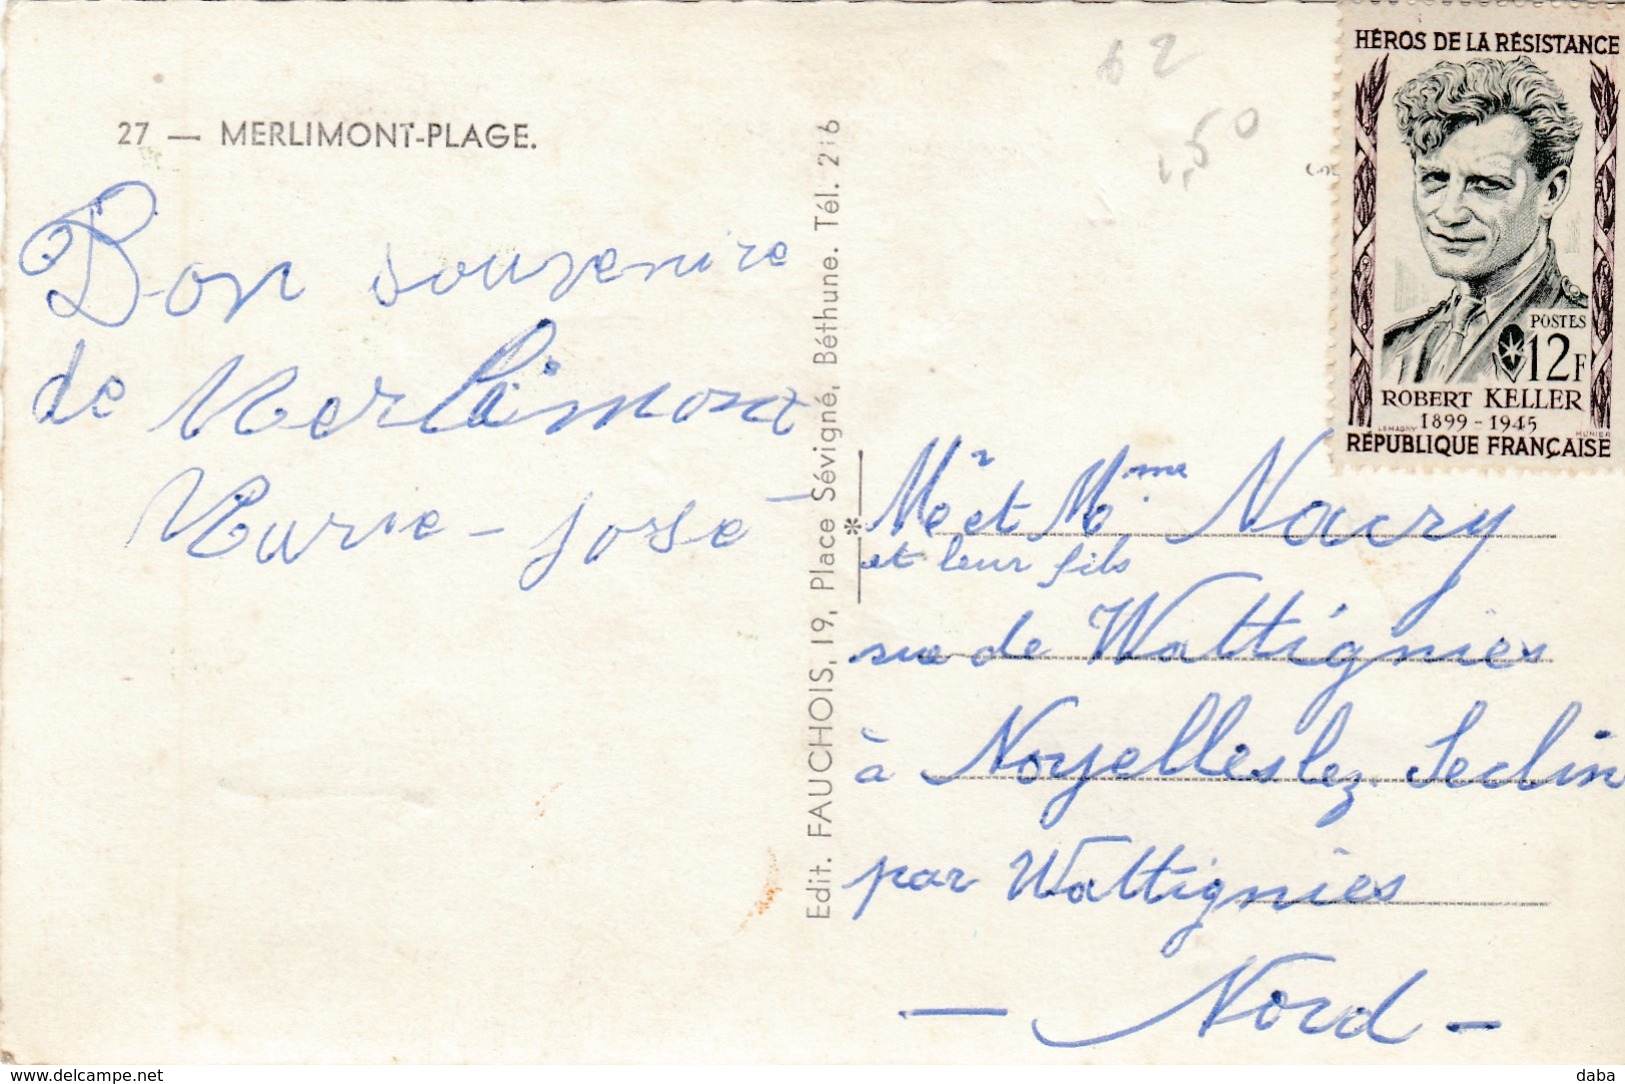 27 — MERLIMONT-PLAGE.
Bon souvenire
de Merlimont
Marie-José
Edit. FAUCHOIS, 19, Place Sévigné, Béthune. Tél. 2:6
62
1,50
HÉROS DE LA RÉSISTANCE
POSTES
12F
ROBERT KELLER
1899-1945
LEMAGNY MUNIER
RÉPUBLIQUE FRANÇAISE
Mr et Mme Nacry
et leur fils
rue de Wattignies
à Noyelles lez Seclin
par Wattignies
— Nord —
www.delcampe.net
daba